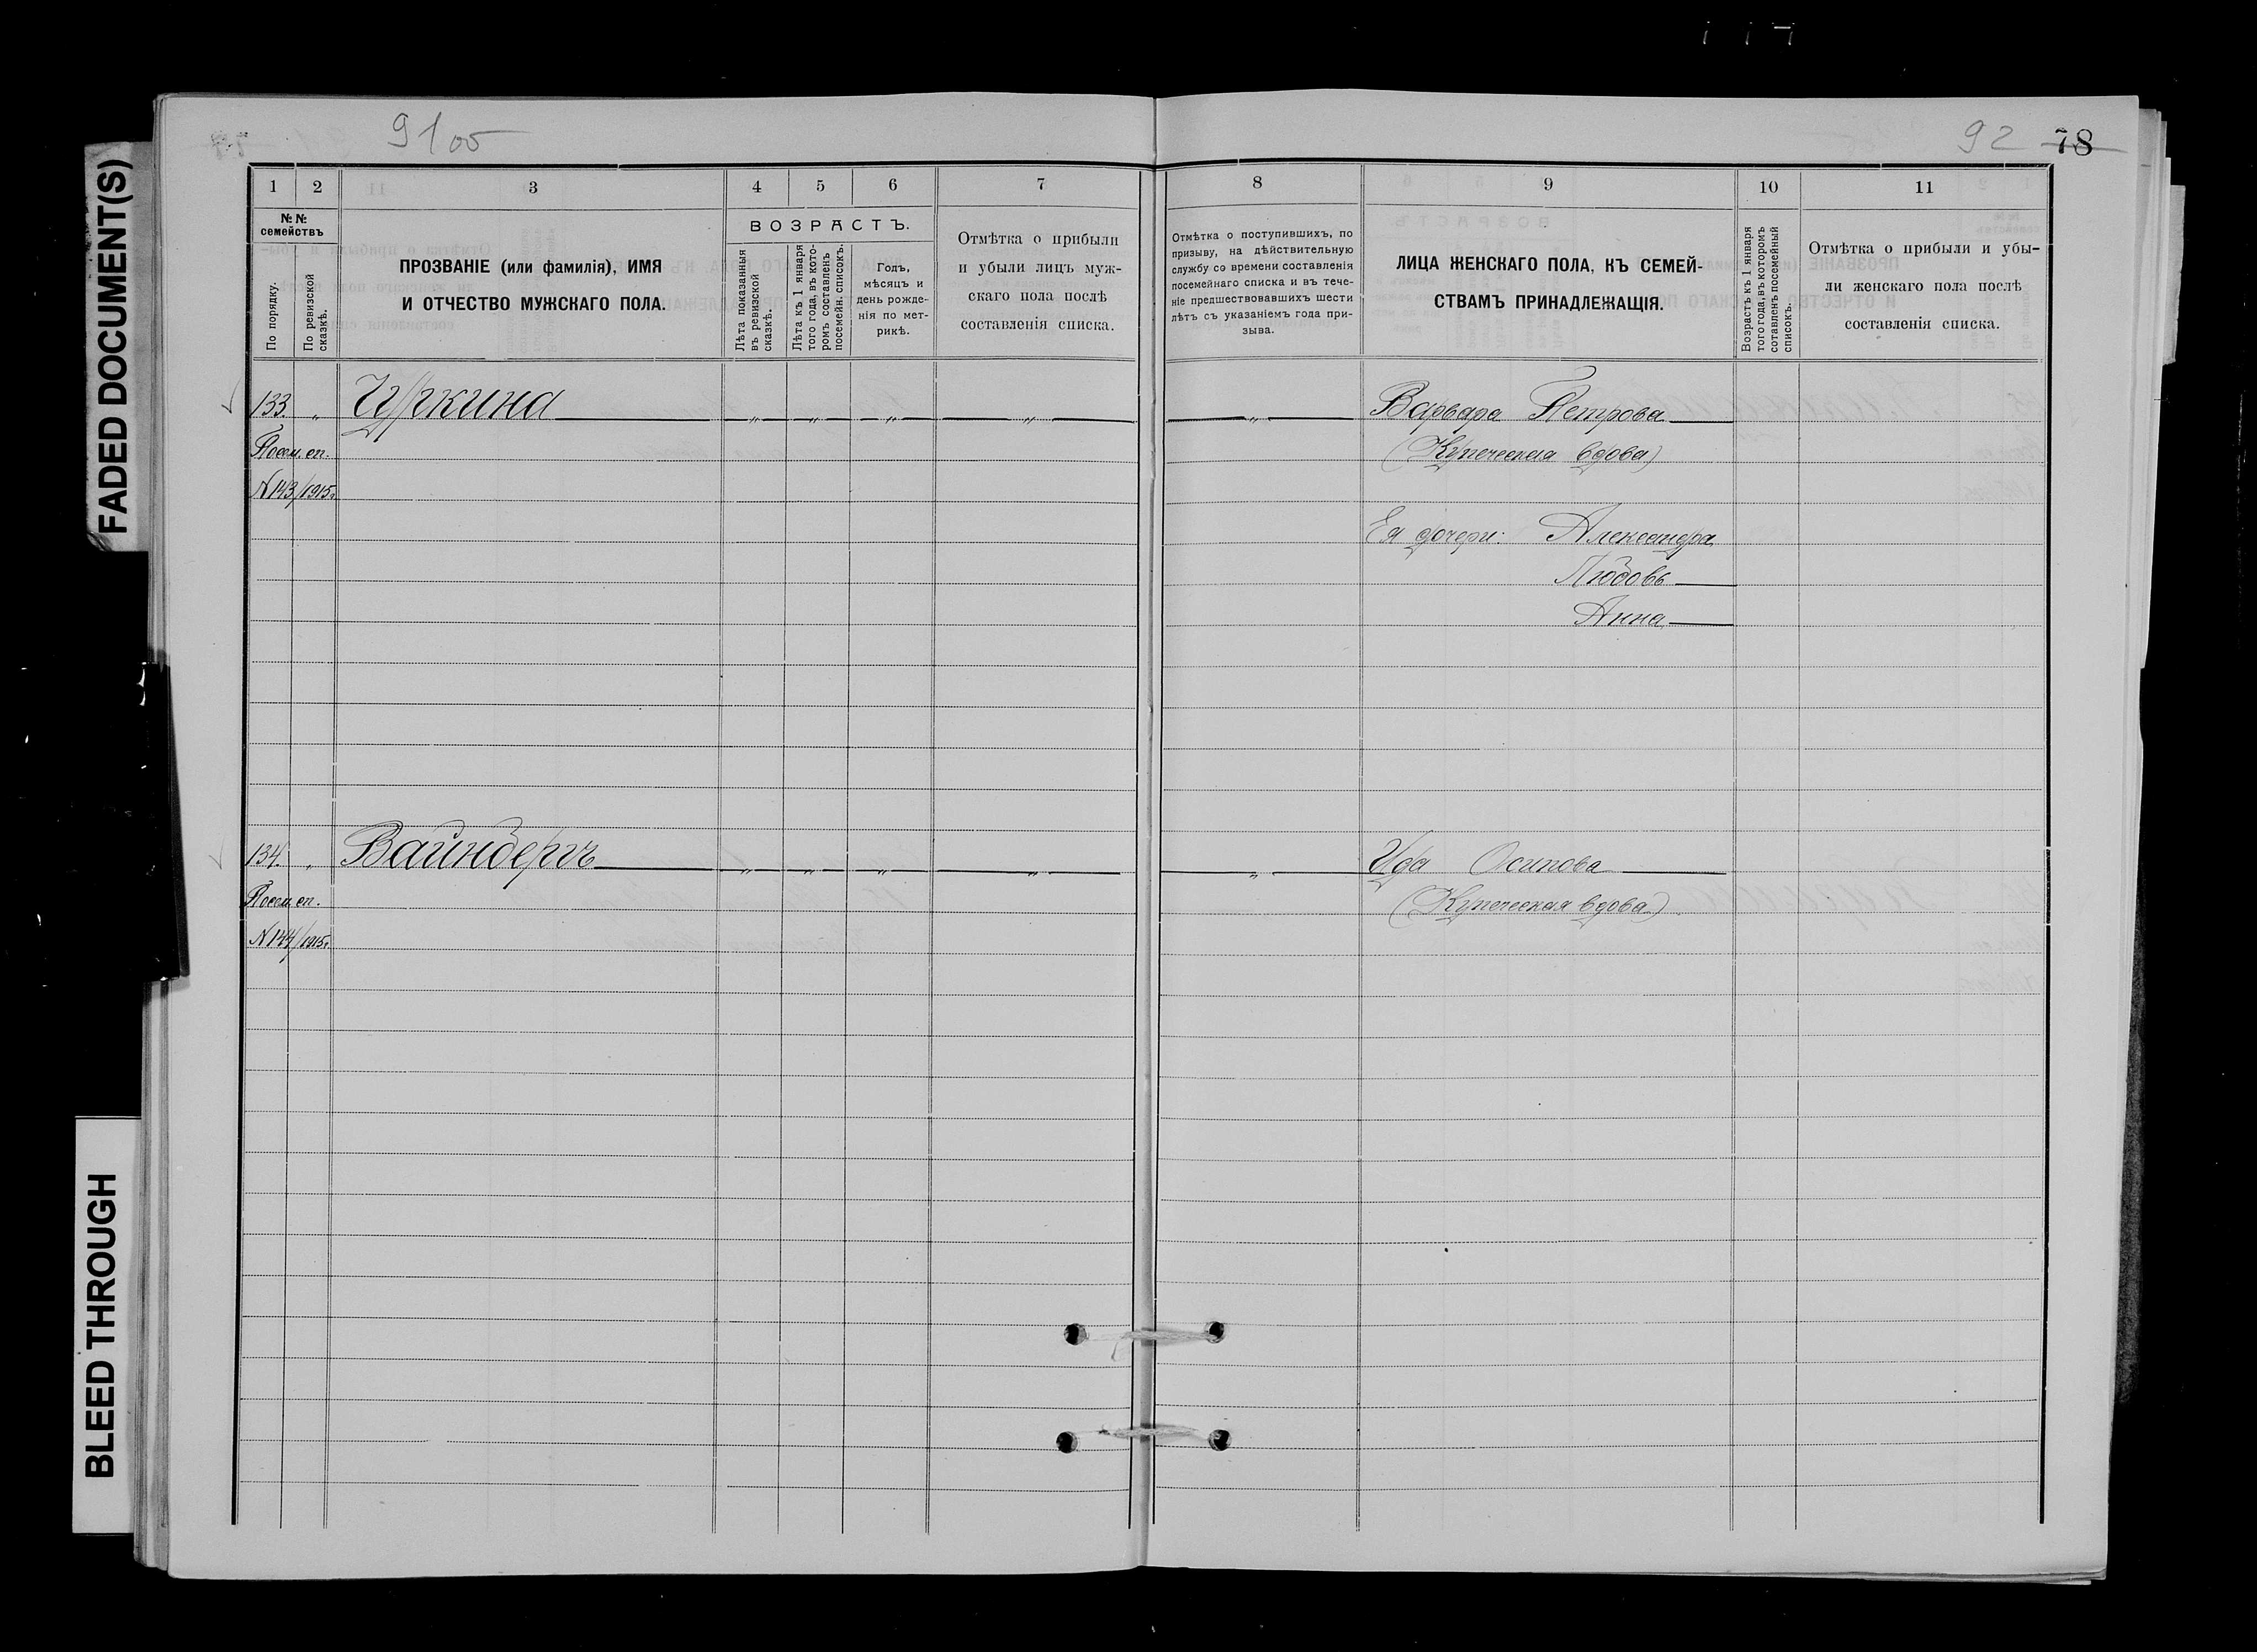 FADED DOCUMENT(S)
BLEED THROUGH
91 об
92 78
1 2 3 4 5 6 7
№№ семействъ
По порядку.
По ревизской сказкѣ.
ПРОЗВАНІЕ (или фамилія), ИМЯ
И ОТЧЕСТВО МУЖСКАГО ПОЛА.
ВОЗРАСТЪ.
Лѣта показанныя въ ревизской сказкѣ.
Лѣта къ 1 января того года, въ которомъ составленъ посемейн. списокъ.
Годъ,
мѣсяцъ и
день рожде-
нія по мет-
рикѣ.
Отмѣтка о прибыли
и убыли лицъ муж-
скаго пола послѣ
составленія списка.
133. „ Цуркина „ „ „ „
Посем. сп.
N 143/1915г.
134. „ Вайнбергъ „ „ „ „
Посем. сп.
N 144/1915г.
8 9 10 11
Отмѣтка о поступившихъ, по
призыву, на дѣйствительную
службу со времени составленія
посемейнаго списка и въ тече-
ніе предшествовавшихъ шести
лѣтъ съ указаніемъ года при-
зыва.
ЛИЦА ЖЕНСКАГО ПОЛА, КЪ СЕМЕЙ-
СТВАМЪ ПРИНАДЛЕЖАЩІЯ.
Возрастъ къ 1 января
того года, въ которомъ
составленъ посемейный
списокъ.
Отмѣтка о прибыли и убы-
ли женскаго пола послѣ
составленія списка.
„ Варвара Петрова
(Купеческая вдова)
Ея дочери: Александра
Любовь
Анна
„ Ида Осипова
(Купеческая вдова)